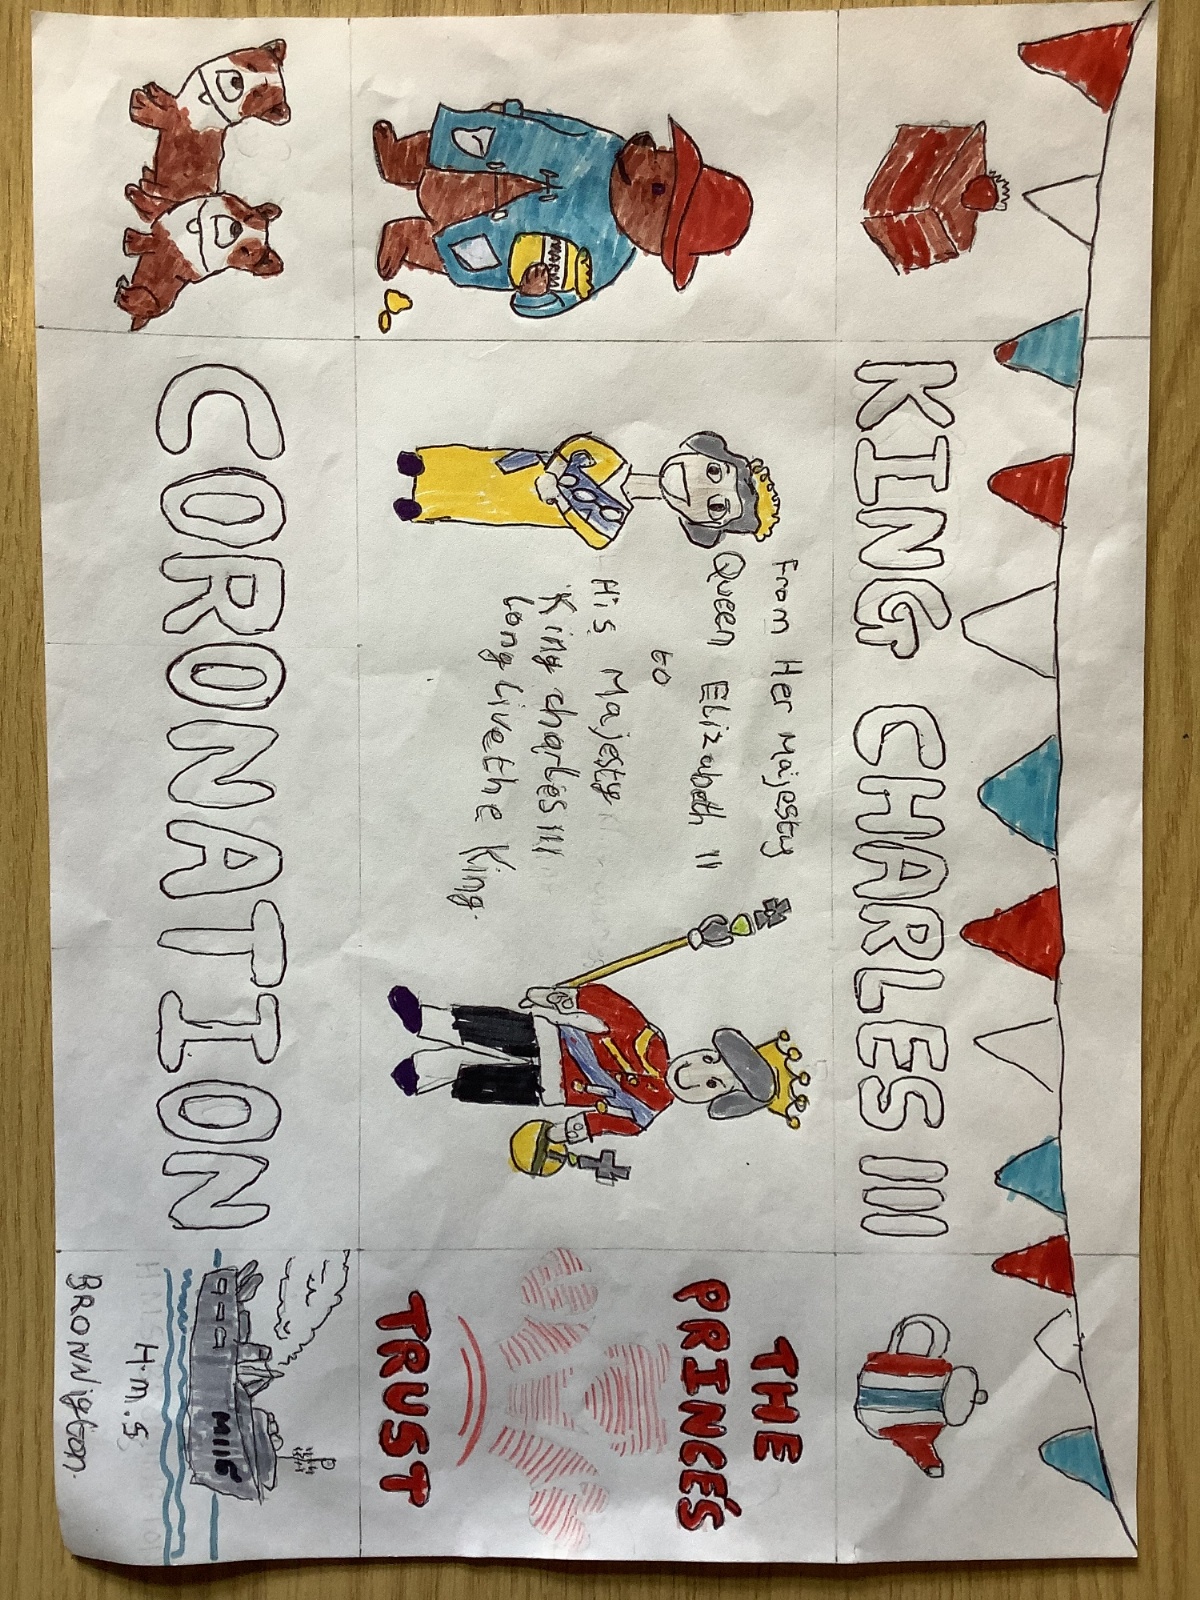 KING CHARLES III
MARM
From Her Majesty
Queen Elizabeth II
to
His Majesty
King charles III
Long live the King.
THE
PRINCE'S
TRUST
CORONATION
M116
H.M.S
BRONNigton.